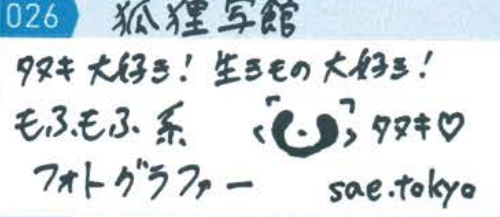 026 狐狸写館
タヌキ大好き！生きもの大好き！
もふもふ系 タヌキ♡
フォトグラファー sae.tokyo